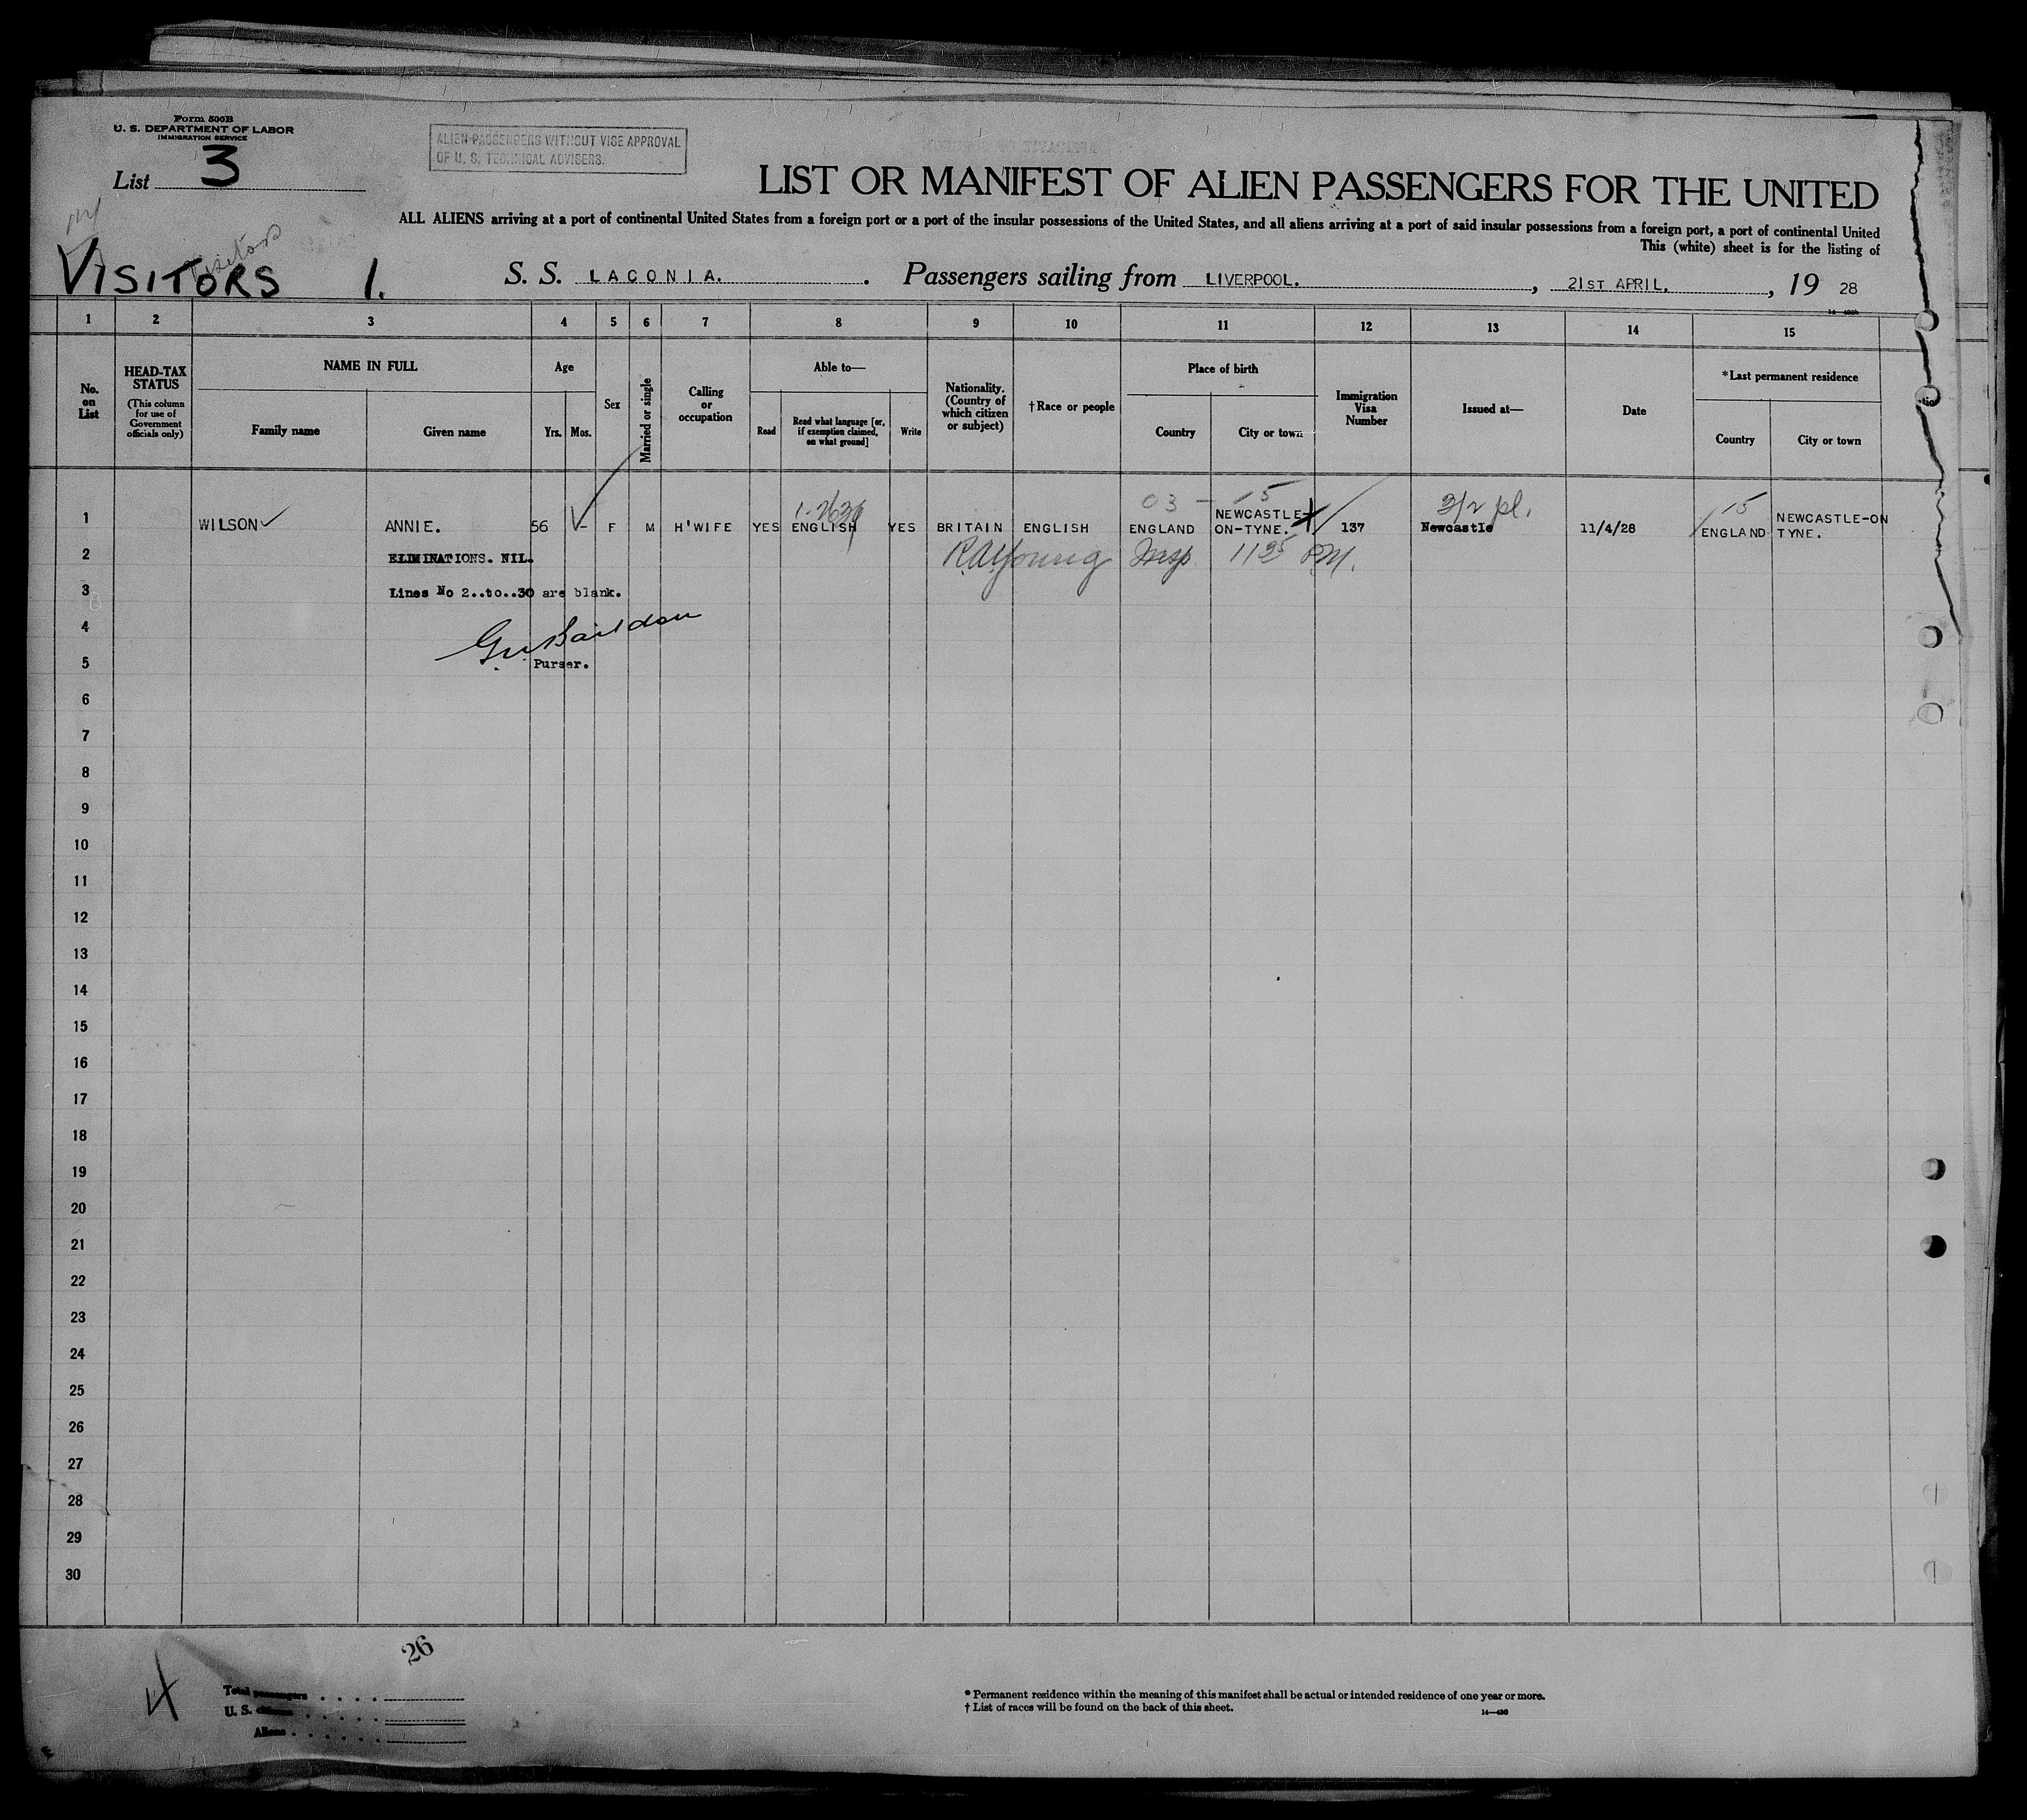 Form 500B
U. S. DEPARTMENT OF LABOR
IMMIGRATION SERVICE
List 3
ALIEN PASSENGERS WITHOUT VISE APPROVAL
OF U. S. TECHNICAL ADVISERS.
LIST OR MANIFEST OF ALIEN PASSENGERS FOR THE UNITED
ALL ALIENS arriving at a port of continental United States from a foreign port or a port of the insular possessions of the United States, and all aliens arriving at a port of said insular possessions from a foreign port, a port of continental United
This (white) sheet is for the listing of
Visitors
VISITORS 1.
S. S. LACONIA. Passengers sailing from LIVERPOOL. , 21ST APRIL, , 19 28
1 2 3 4 5 6 7 8 9 10 11 12 13 14 15
No. on List
HEAD-TAX STATUS
(This column for use of Government officials only)
NAME IN FULL
Family name
Given name
Age
Yrs. Mos.
Sex
Married or single
Calling or occupation
Able to—
Read
Read what language [or, if exemption claimed, on what ground]
Write
Nationality. (Country of which citizen or subject)
† Race or people
Place of birth
Country
City or town
Immigration Visa Number
Issued at—
Date
*Last permanent residence
Country
City or town
03 - 15
3/2 pl.
15
1 WILSON ANNIE. 56 - F M H'WIFE YES ENGLISH YES BRITAIN ENGLISH ENGLAND NEWCASTLE-ON-TYNE. 137 Newcastle 11/4/28 ENGLAND NEWCASTLE-ON TYNE.
2 ELIMINATIONS. NIL. Young Insp 1125 PM.
3 Lines No 2..to..30 are blank.
4
5 Purser.
6
7
8
9
10
11
12
13
14
15
16
17
18
19
20
21
22
23
24
25
26
27
28
29
30
26
Total passengers
U. S. citizens
Aliens
* Permanent residence within the meaning of this manifest shall be actual or intended residence of one year or more.
† List of races will be found on the back of this sheet.
14—430